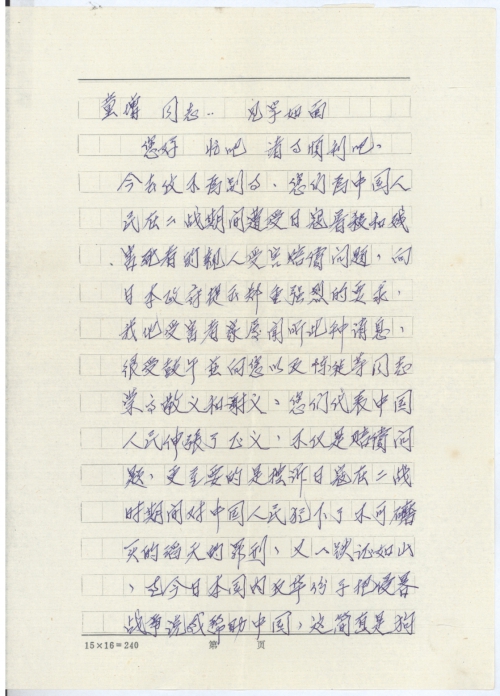 童增 同志：见字如面
您好 忙吧 诸事顺利吧，
今去仅不为别事、您们为中国人
民在二战期间遭受日寇屠杀和残
害死者的亲人受害赔偿问题，向
日本政府提出郑重强烈的要求，
我地受害者家属闻听此种消息，
很受鼓午并向您以及陈健等同志
崇高敬义和谢义，您们代表中国
人民伸张了正义，不仅是赔偿问
题，更主要的是控诉日寇在二战
时期间对中国人民犯下了不可磨
灭的滔天的罪刑，又一铁证如山
，至今日本国内反华份子把侵略
战争说成帮助中国，这简直是狗
15×16=240 第 页